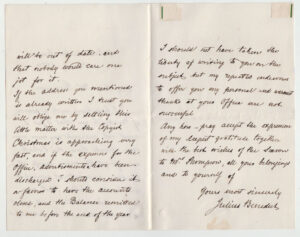 will be out of date. and
that nobody would care one
jot for it.
If the address you mentioned
is already written I trust you
will oblige me by settling this
little matter with the
Christmas is approaching very
fast, and if the expenses for the
Offer, advertisements, have been
discharged I should consider it
a favour to have the accounts
closed, and the Balance remitted
to me before the end of the year.
I should not have taken the
liberty of writing to you on the
subject, but my repeated
to offer you my personal and
thanks at your Office are not
successful
Any how - pray accept the expression
of my deepest gratitude together
with the best wishes of the Season
to Mrs all your belongings
and to yourself of
Yours most sincerely
Julius Benedict